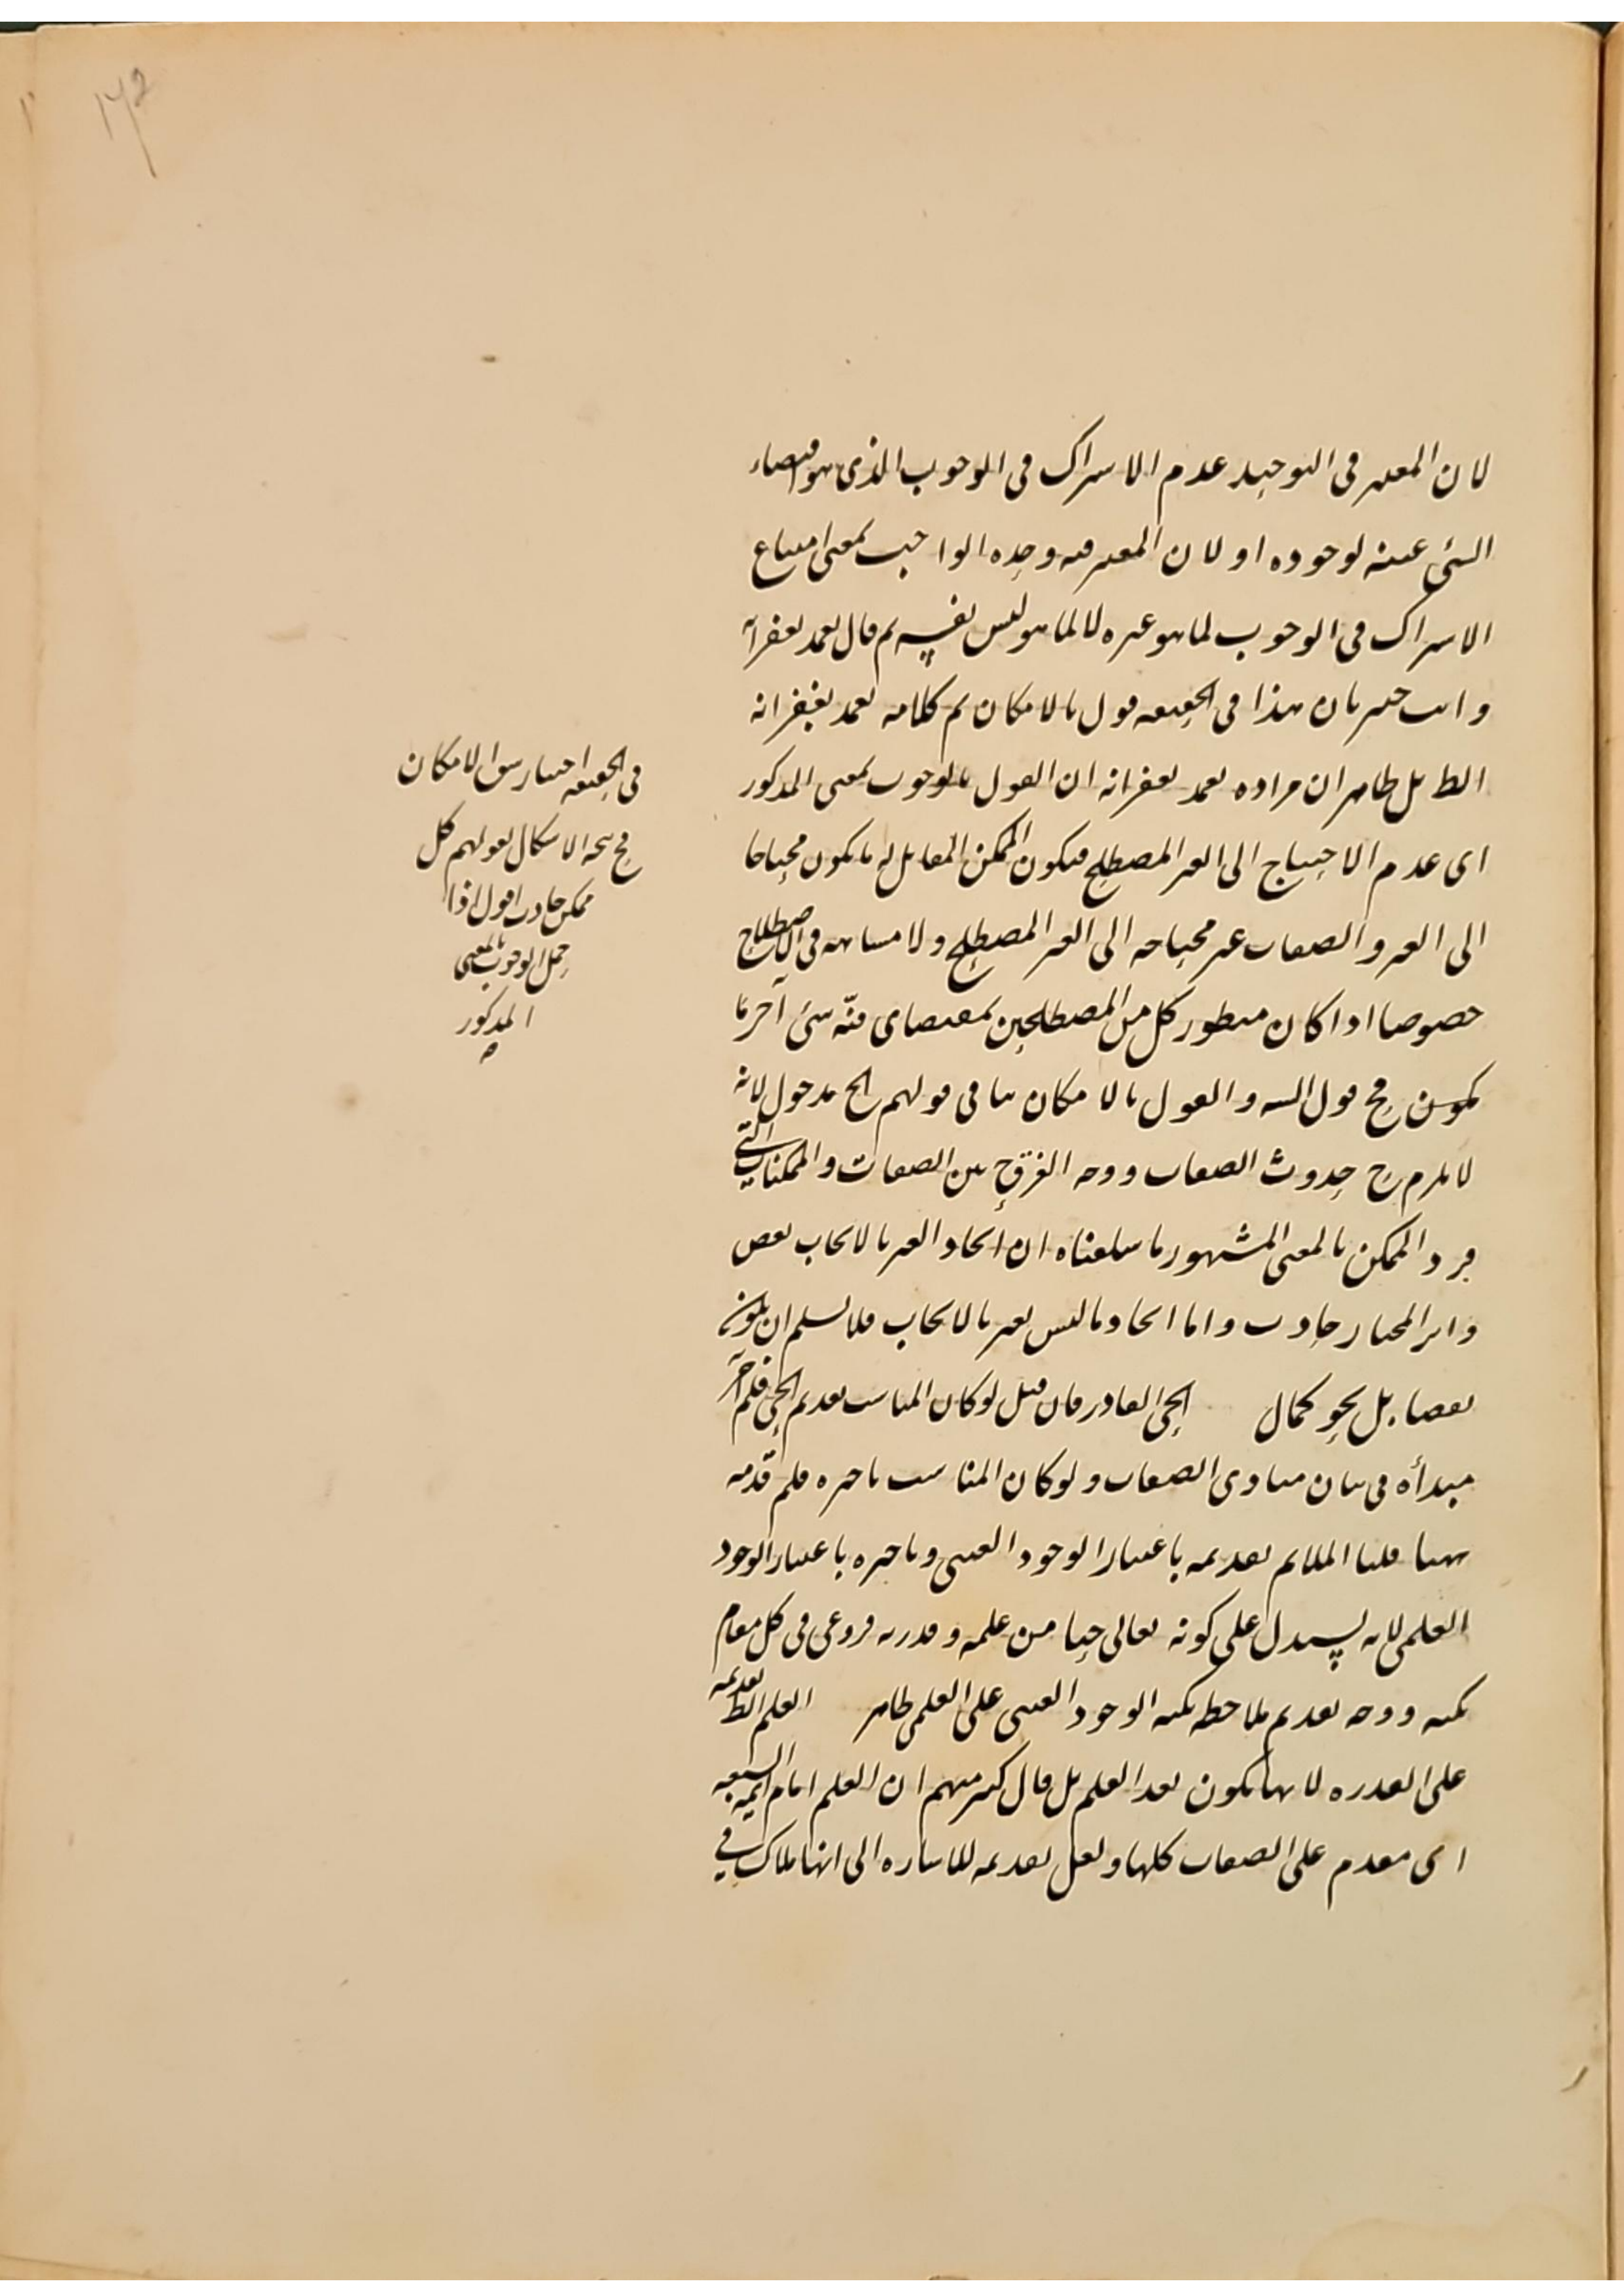 ١٧٢
لان المعتبر فى التوحيد عدم الاشتراك فى الوجوب الذى هو اقتضاء
الشئ عينه لوجوده او لان المعتبر فيه وحدة الواجب بمعنى امتناع
الاشتراك فى الوجوب لما هو غيره لا لما هو ليس نفسه ثم قال تغمد بغفرانه
وانت خبير بان هذا فى الحقيقة قول بالامكان ثم كلامه تغمد بغفرانه
الظ بل ظاهر ان مراده تغمد بغفرانه ان القول بالوجوب بمعنى المذكور
اى عدم الاحتياج الى الغير المصطلح فيكون الممكن المقابل له ما يكون محتاجا
الى الغير والصفات غير محتاجة الى الغير المصطلح ولا مشاحة فى الاصطلاح
خصوصا اذا كان منظور كل من المصطلحين بمقتضاى فنّه شئ آخر
قول السنة والقول بالامكان ينافى قولهم الخ مدخول لانه
لا يلزم ح حدوث الصفات ووجه الفرق ح بين الصفات والممكنات التى
فرد الممكن بالمعنى المشهور ما سلفناه ان ايجاد الغير بالايجاب نقص
واثر المختار حادث واما ايجاد ما ليس بغير بالايجاب فلا نسلم ان يكون
نقصا بل نحو كمال الحى القادر فان قيل لو كان المناسب تقديم الحى فلم آخر
مبدأه فى بيان مبادى الصفات ولو كان المناسب تاخيره فلم قدمه
ههنا قلنا الملايم تقديمه باعتبار الوجود العينى وتاخيره باعتبار الوجود
العلمى لانه يستدل على كونه تعالى حيا من علمه وقدرته فروعى فى كل مقام
نكتة ووجه تقديم ملاحظة نكتة الوجود العينى على العلمى ظاهر العلم الظ تقديمه
على القدرة لانها تكون بعد العلم بل قال كثير منهم ان العلم امام ائمة السبعة
اى مقدم على الصفات كلها ولعل تقديمه للاشارة الى انها ملاك فى
فى الحقيقة اختيار شق الامكان
ح يتجه الاشكال بقولهم كل
ممكن حادث اقول اذا
حمل الوجوب بالمعنى
المذكور